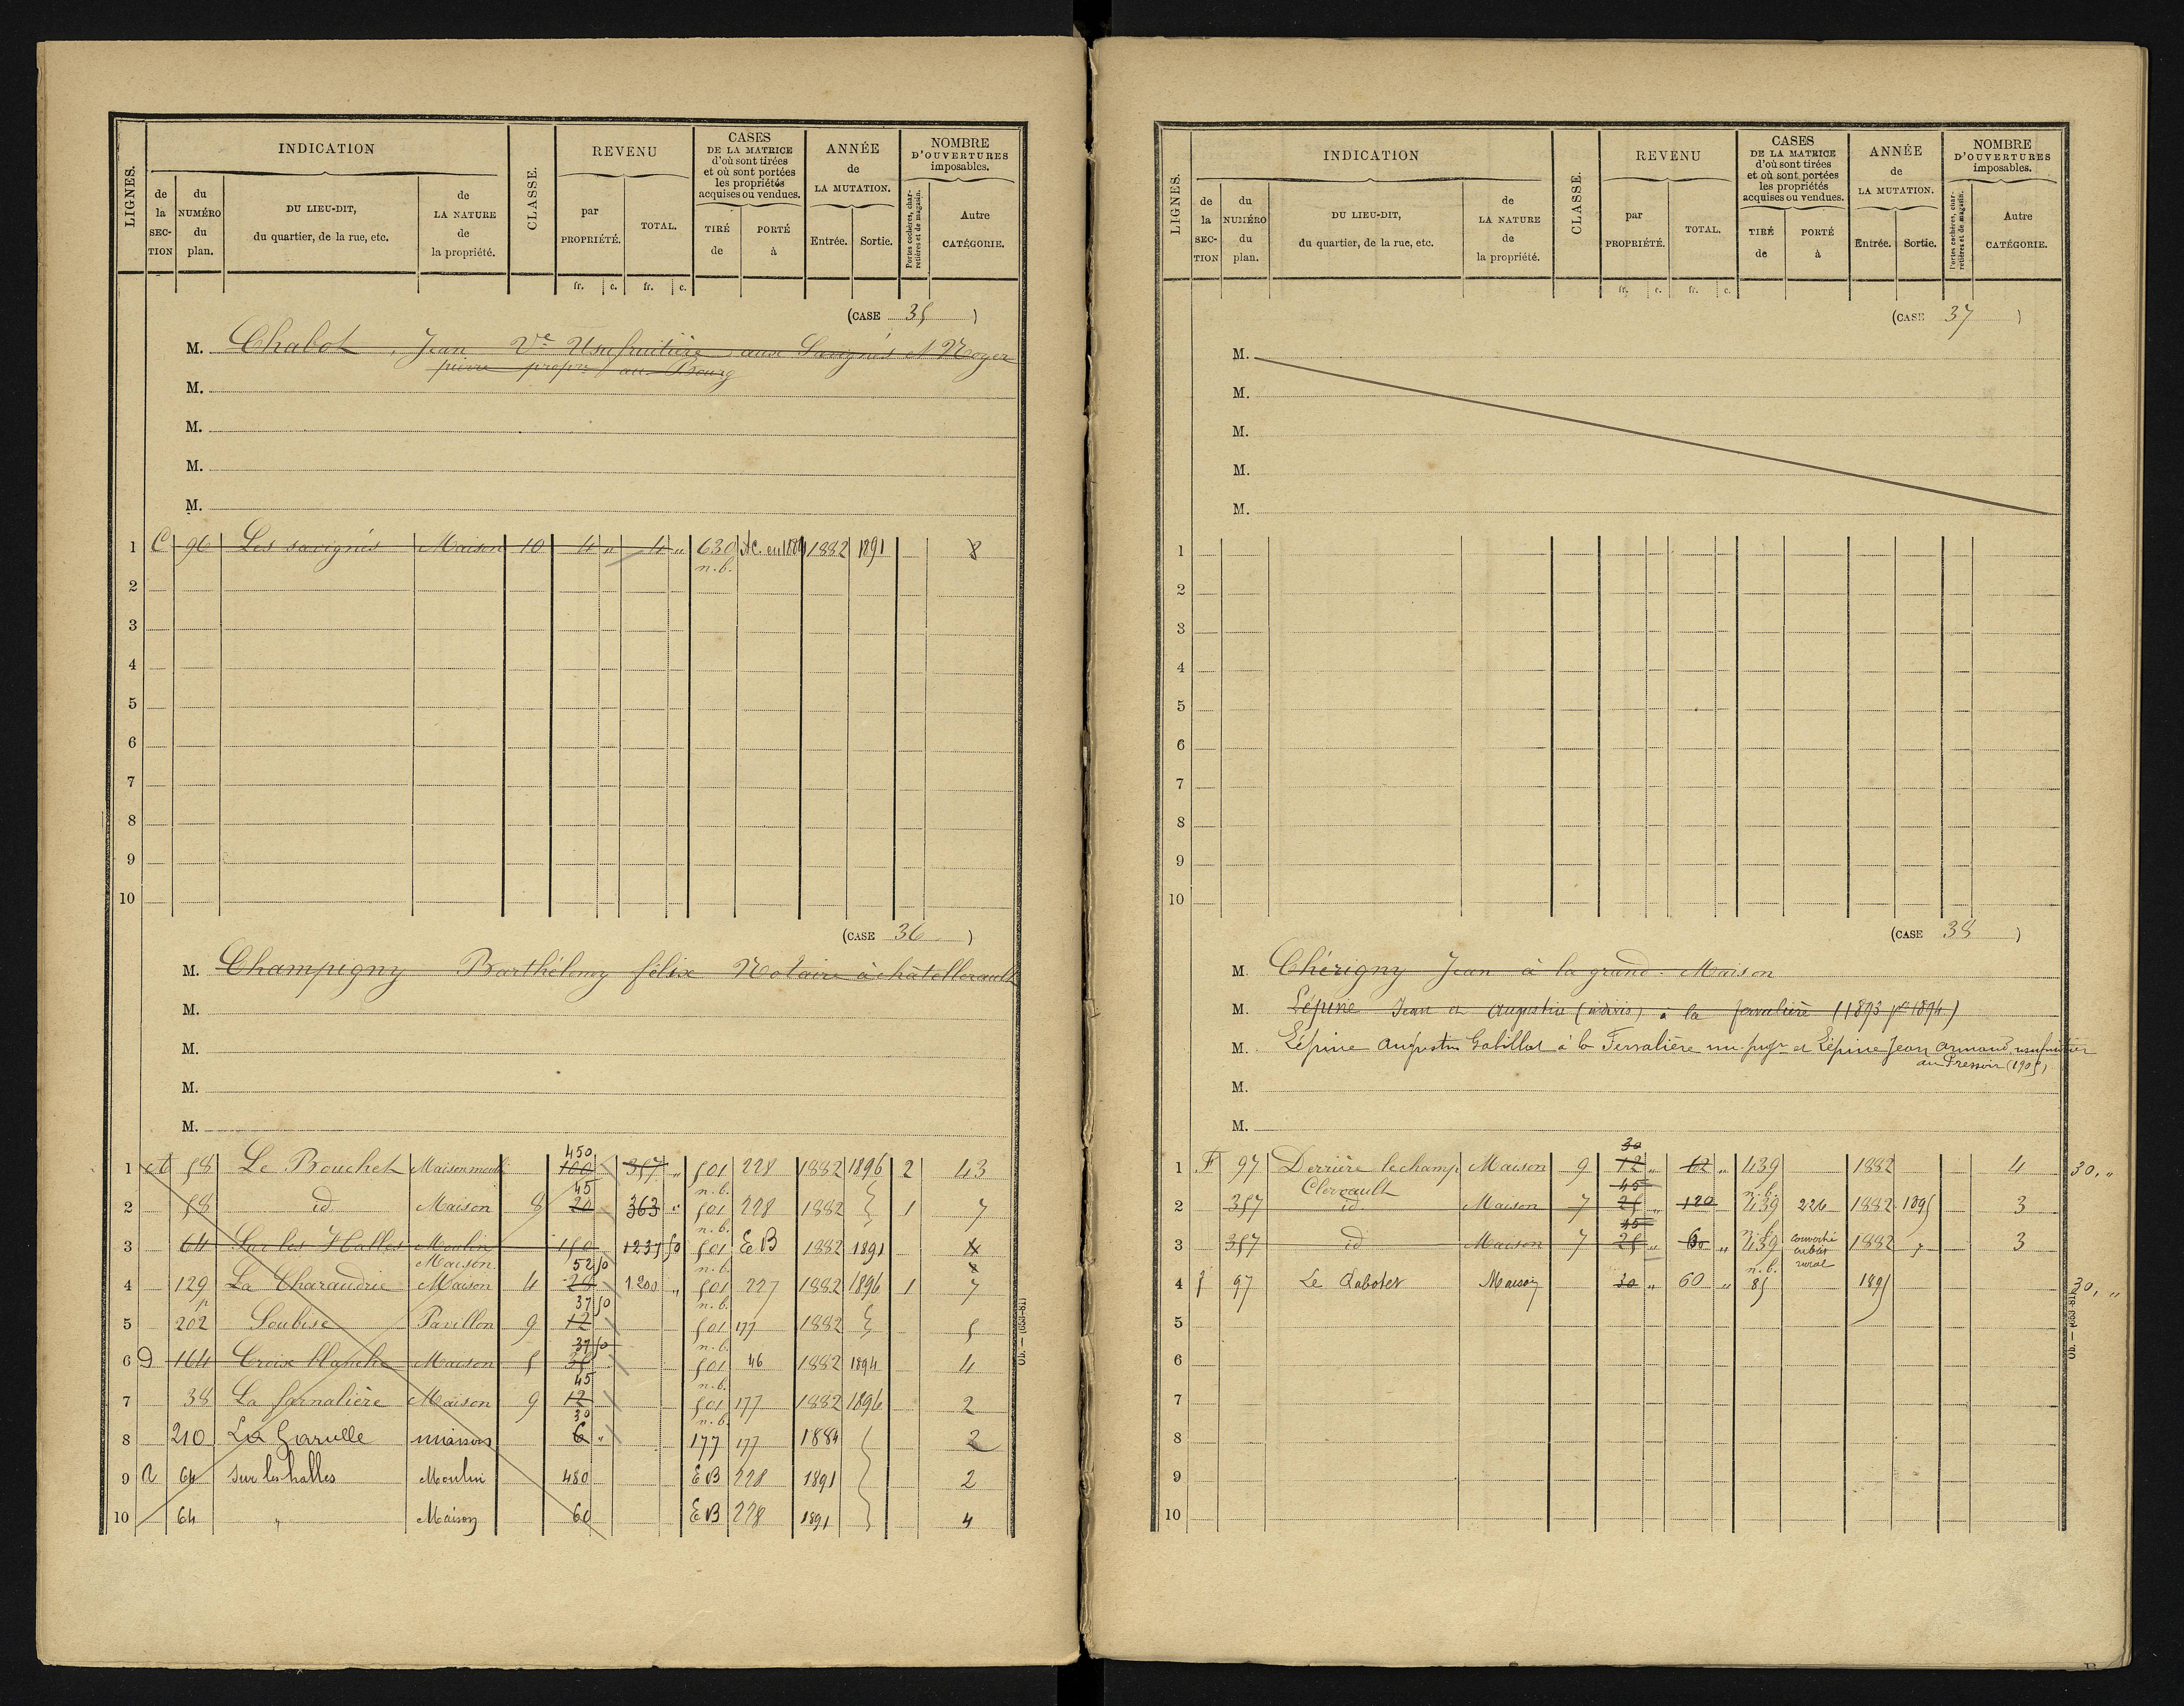 LIGNES.
INDICATION
de la SEC-TION
du NUMÉRO du plan.
DU LIEU-DIT, du quartier, de la rue, etc.
de LA NATURE de la propriété.
CLASSE.
REVENU
par PROPRIÉTÉ.
TOTAL.
CASES DE LA MATRICE d'où sont tirées et où sont portées les propriétés acquises ou vendues.
TIRÉ de
PORTÉ à
ANNÉE de LA MUTATION.
Entrée.
Sortie.
NOMBRE D'OUVERTURES imposables.
Portes cochères, charretières et de magasin.
Autre CATÉGORIE.
fr. c. fr. c.
(CASE 35 )
M. Chabot, Jean Ve Usufruitière aux Savignés et Noyer
pierre propre au Bourg
M.
M.
M.
M.
1 C 96 Les savignés Maison 10 4 " 4 " 630 n.b. 1882 1891 8
2
3
4
5
6
7
8
9
10
(CASE 36 )
M. Champigny Barthélemy félix Notaire à châtellerault
M.
M.
M.
M.
450
1 A 58 Le Bouchet Maison 100 357 " 501 228 1882 1896 2 43
45 n.b.
2 58 id Maison 8 20 363 " 501 228 1882 1 7
n.b.
3 64 Sur les Halles Moulin 150 1237 50 501 EB 1882 1891 4
Maison 52 50 n.b. 8
4 129 La Charaudrie Maison 4 20 1200 " 501 227 1882 1896 1 7
37 50 n.b.
5 202 Soubise Pavillon 9 12 501 177 1882 5
37 50 n.b.
6 D 164 Croix blanche Maison 5 501 46 1882 1894 4
45 n.b.
7 38 La farnalière Maison 9 12 501 177 1882 1896 2
30 n.b.
8 210 La Garulle maison 6 " 177 177 1884 2
9 A 64 Sur les halles Moulin 480 EB 228 1891 2
10 64 " Maison 60 EB 228 1891 4
LIGNES.
INDICATION
de la SEC-TION
du NUMÉRO du plan.
DU LIEU-DIT, du quartier, de la rue, etc.
de LA NATURE de la propriété.
CLASSE.
REVENU
par PROPRIÉTÉ.
TOTAL.
CASES DE LA MATRICE d'où sont tirées et où sont portées les propriétés acquises ou vendues.
TIRÉ de
PORTÉ à
ANNÉE de LA MUTATION.
Entrée.
Sortie.
NOMBRE D'OUVERTURES imposables.
Portes cochères, charretières et de magasin.
Autre CATÉGORIE.
fr. c. fr. c.
(CASE 37 )
M.
M.
M.
M.
M.
1
2
3
4
5
6
7
8
9
10
(CASE 38 )
M. Chérigny Jean à la grand. Maison
M. Lépine Jean et Augustin (indivis) à la (1893 pr 1894)
M. Lépine Augustin Gabillat à la Ferralière nu propr et Lépine Jean Armand usufruitier
au Pressoir (1905)
M.
M.
30
1 F 97 Derrière le champ Maison 9 12 " 62 " 439 1882 4 30, "
Clereault 45 n.b.
2 357 id Maison 7 25 " 120 439 226 1882 1895 3
45 n.b.
3 357 id Maison 7 25 " 60 " 439 converti en bât rural 1882 3
n.b.
4 f 97 Le Rabotet Maison 30 " 60 " 85 1895 30, "
5
6
7
8
9
10